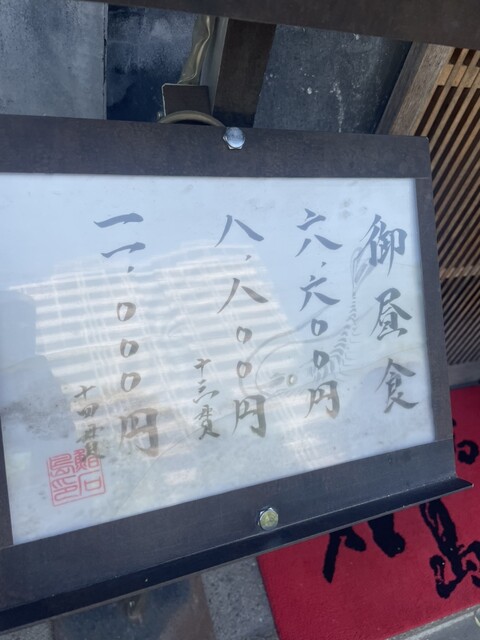 御昼食
六、六〇〇円
八、八〇〇円
十三貫
一一、〇〇〇円
十四貫